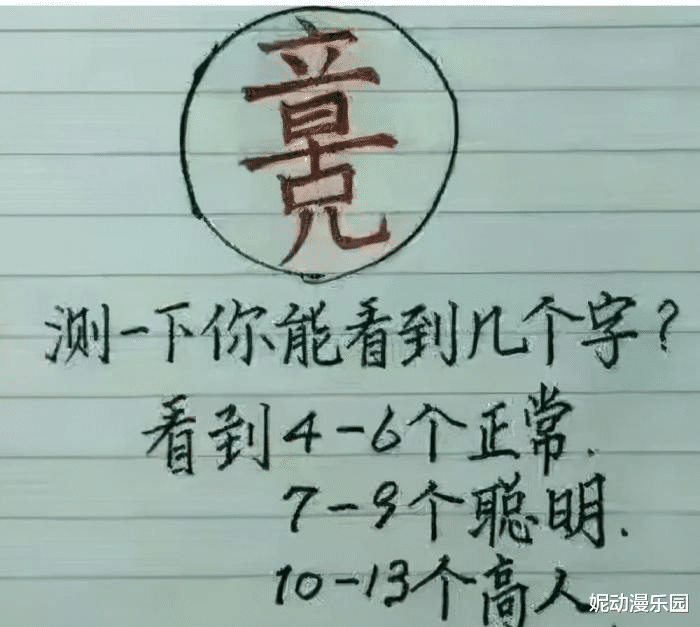 测一下你能看到几个字？
看到4-6个正常.
7-9个聪明.
10-13个高人
妮动漫乐园